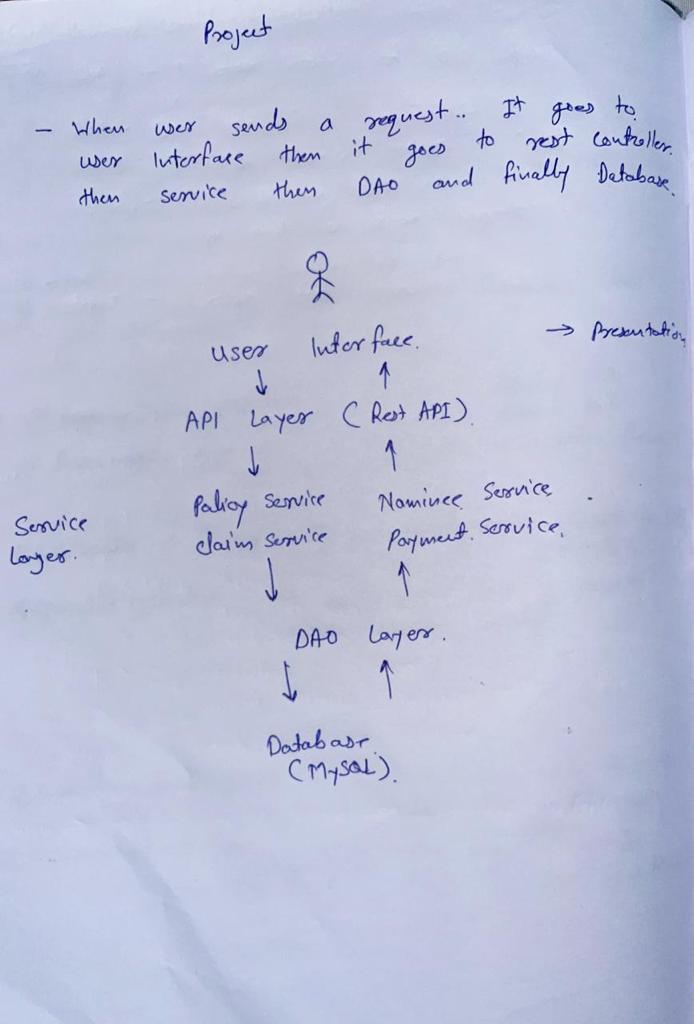 Project
- When user sends a request.. It goes to
user Interface then it goes to rest Controller.
then service then DAO and finally Database.
User Interface. → Presentation
API Layer (Rest API).
Policy Service Nominee Service.
Service claim Service Payment. Service.
Layer.
DAO Layer.
Database.
(MySQL).